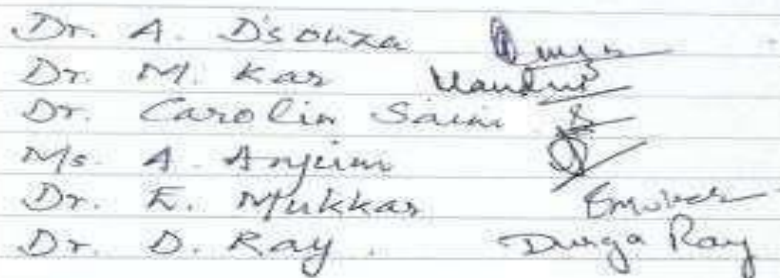 Dr. A. D'souza
Dr. M. Kar
Dr. Carolin Saini
Ms. A. Anjum
Dr. E. Mukkar
Dr. D. Ray. Durga Ray